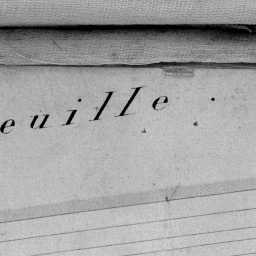 euille .